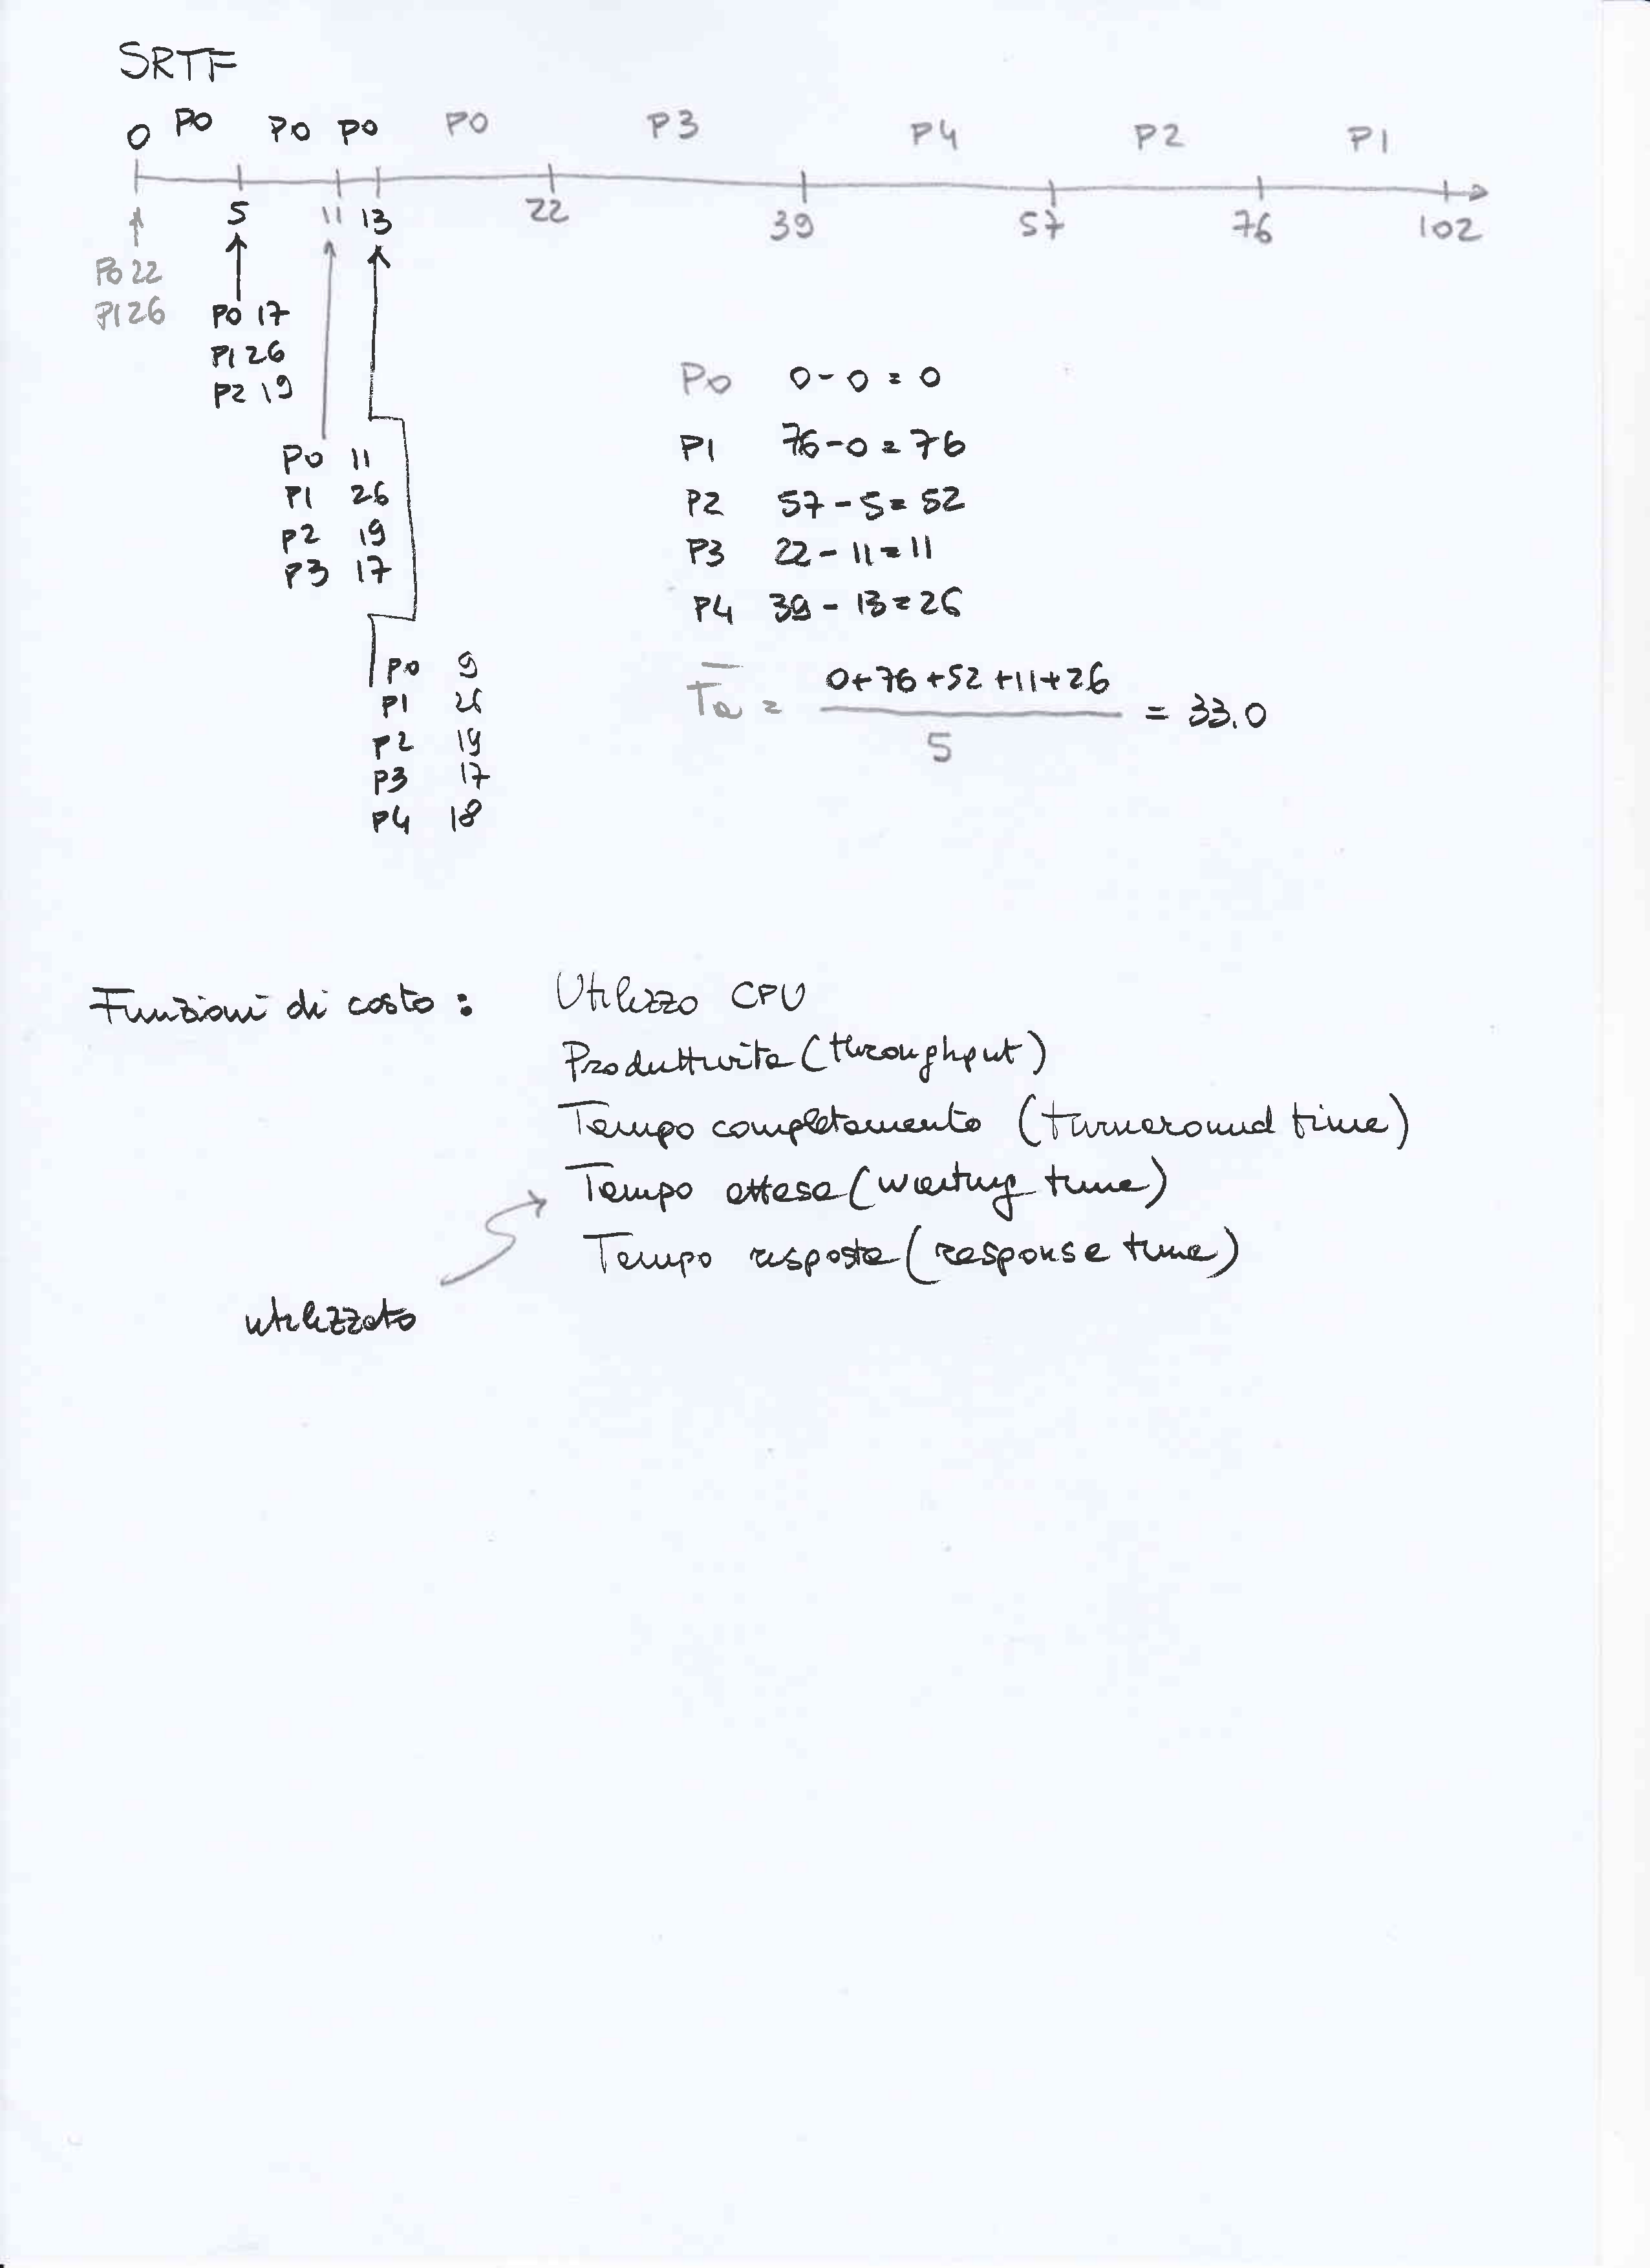 SRTF
0 P0 P0 P0 P0 P3 P4 P2 P1
5 11 13 22 39 57 76 102
P0 22
P1 26
P0 17
P1 26
P2 19
P0 11
P1 26
P2 19
P3 17
P0 9
P1 26
P2 19
P3 17
P4 18
P0 0-0=0
P1 76-0=76
P2 57-5=52
P3 22-11=11
P4 39-13=26
0+76+52+11+26
Ta = = 33.0
5
Funzioni di costo: Utilizzo CPU
Produttività (throughput)
Tempo completamento (turnaround time)
Tempo attesa (waiting time)
Tempo risposta (response time)
utilizzato